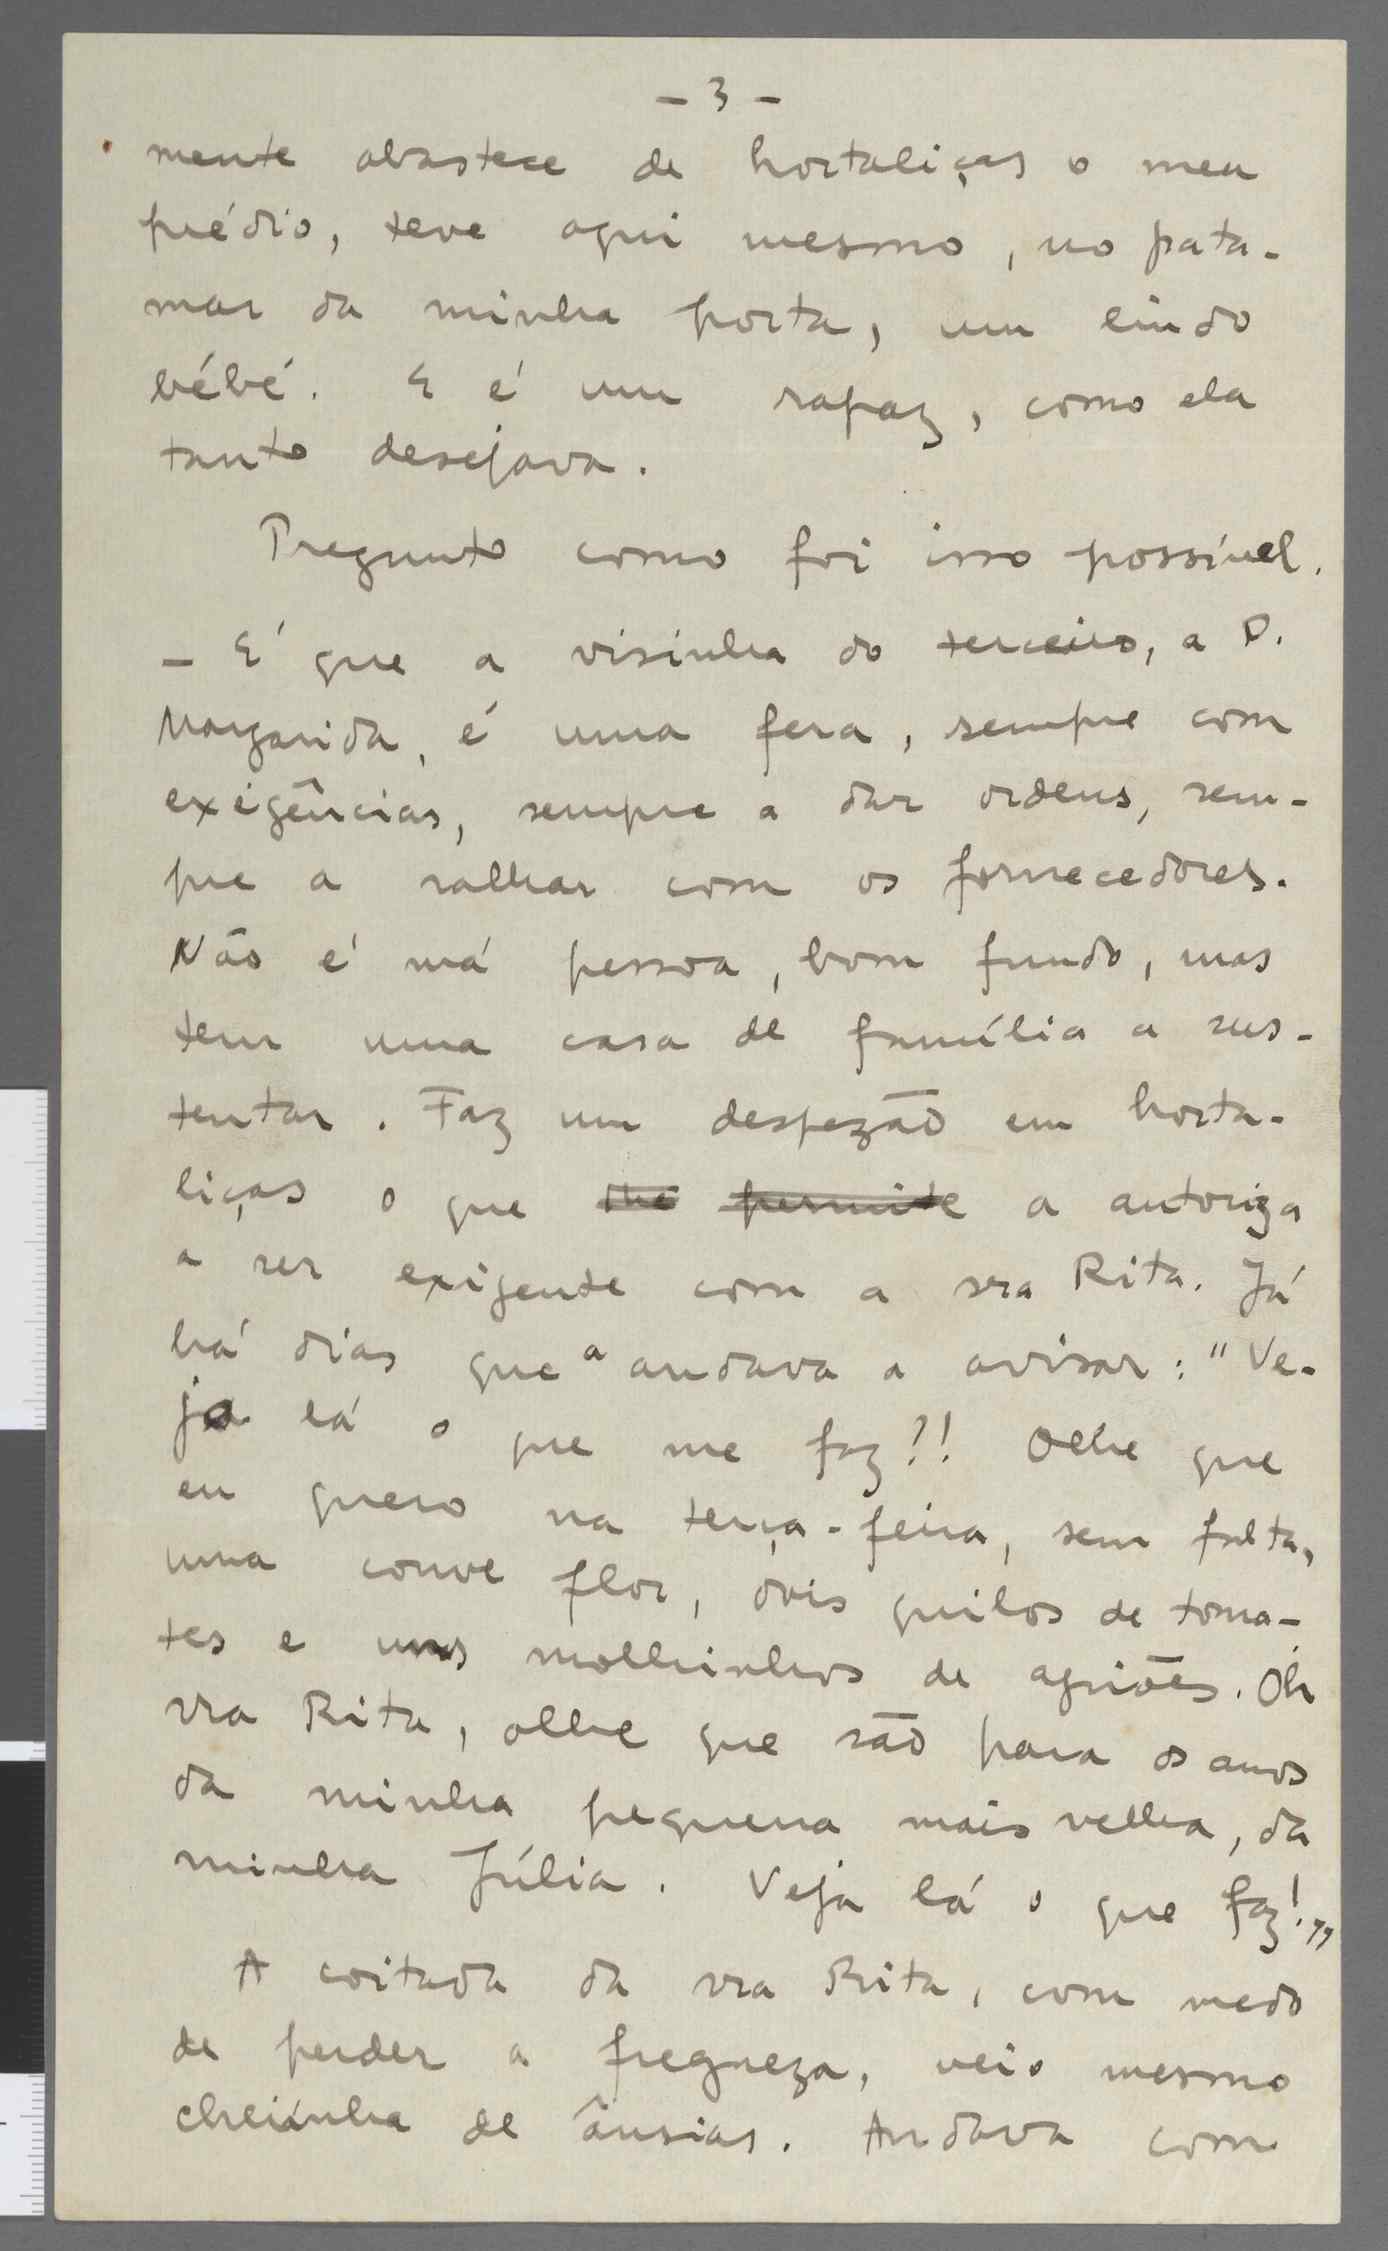 - 3 -
mente abastece de hortaliças o meu
prédio, teve aqui mesmo, no pata-
mar da minha porta, um lindo
bébé. E é um rapaz, como ela
tanto desejava.
Pregunto como foi isso possível.
- É que a visinha do terceiro, a D.
Margarida, é uma fera, sempre com
exigências, sempre a dar ordens, sem-
pre a ralhar com os fornecedores.
Não é má pessoa, bom fundo, mas
tem uma casa de família a sus-
tentar. Faz um despezão em horta-
liças o que lhe permite a autoriza
a ser exigente com a sra Rita. Já
há dias que a andava a avisar: "Ve-
ja lá o que me faz?! Olhe que
eu quero na terça-feira, sem falta,
uma couve flor, dois quilos de toma-
tes e uns molhinhos de agriões. Oh
sra Rita, olhe que são para os anos
da minha pequena mais velha, da
minha Júlia. Veja lá o que faz!"
A coitada da sra Rita, com medo
de perder a fregueza, veio mesmo
cheiinha de ânsias. Andava com